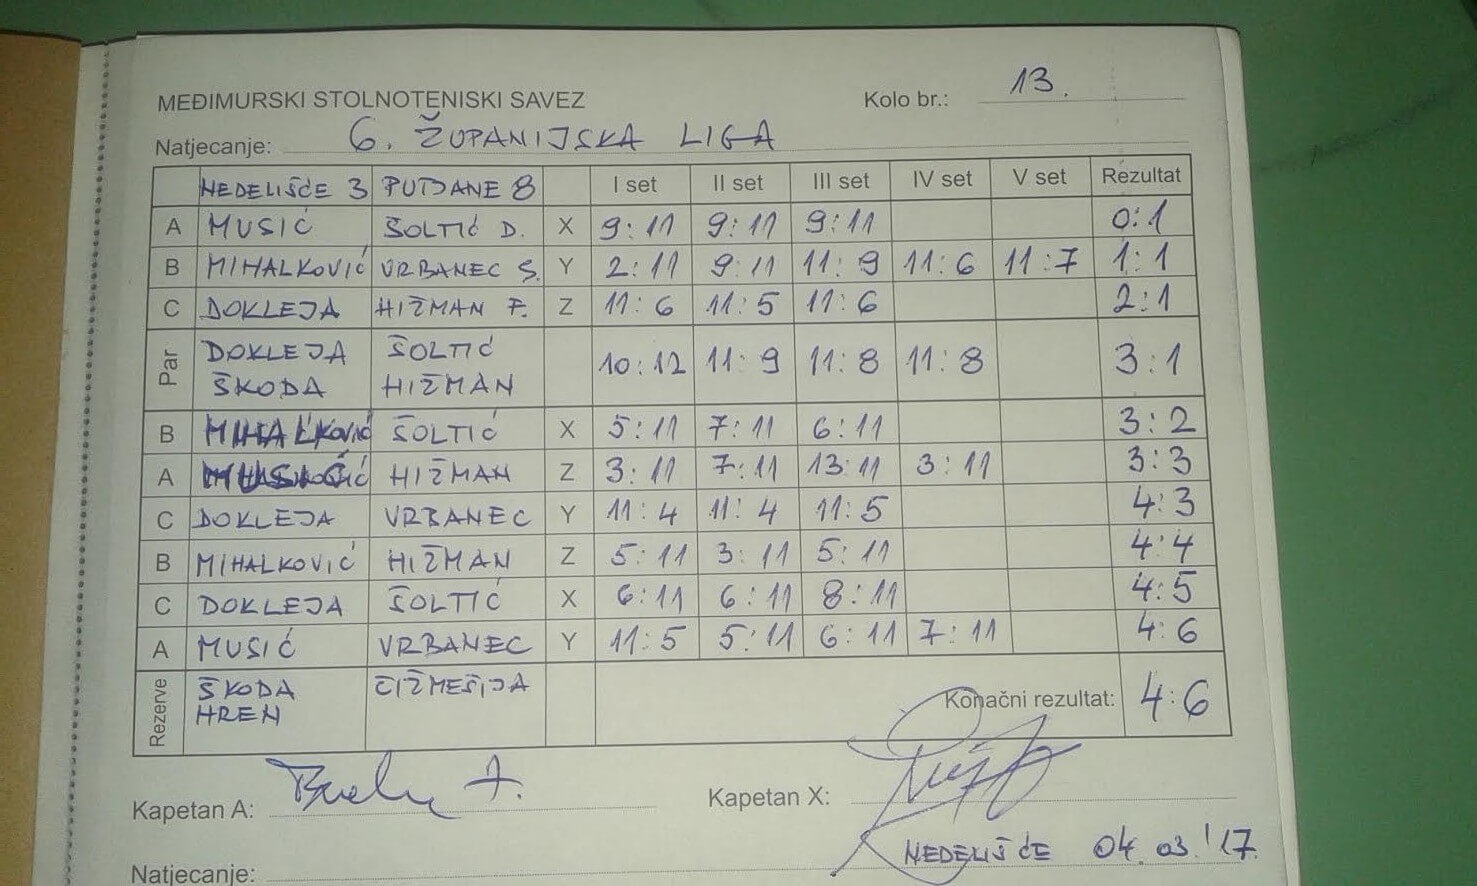 MEĐIMURSKI STOLNOTENISKI SAVEZ Kolo br.: 13.
Natjecanje: 6. ŽUPANIJSKA LIGA
NEDELIŠĆE 3 PUTJANE 8 I set II set III set IV set V set Rezultat
A MUSIĆ ŠOLTIĆ D. X 9:11 9:11 9:11 0:1
B MIHALKOVIĆ VRBANEC S. Y 2:11 9:11 11:9 11:6 11:7 1:1
C DOKLEJA HIŽMAN F. Z 11:6 11:5 11:6 2:1
Par DOKLEJA ŠOLTIĆ 10:12 11:9 11:8 11:8 3:1
ŠKODA HIŽMAN
B MIHALKović ŠOLTIĆ X 5:11 7:11 6:11 3:2
A MUSIĆ HIŽMAN Z 3:11 7:11 13:11 3:11 3:3
C DOKLEJA VRBANEC Y 11:4 11:4 11:5 4:3
B MIHALKOVIĆ HIŽMAN Z 5:11 3:11 5:11 4:4
C DOKLEJA ŠOLTIĆ X 6:11 6:11 8:11 4:5
A MUSIĆ VRBANEC Y 11:5 5:11 6:11 7:11 4:6
Rezerve ŠKODA ČIŽMEŠIJA Konačni rezultat: 4:6
HREN
Kapetan A: Kapetan X:
NEDELIŠĆE 04.03.'17.
Natjecanje: